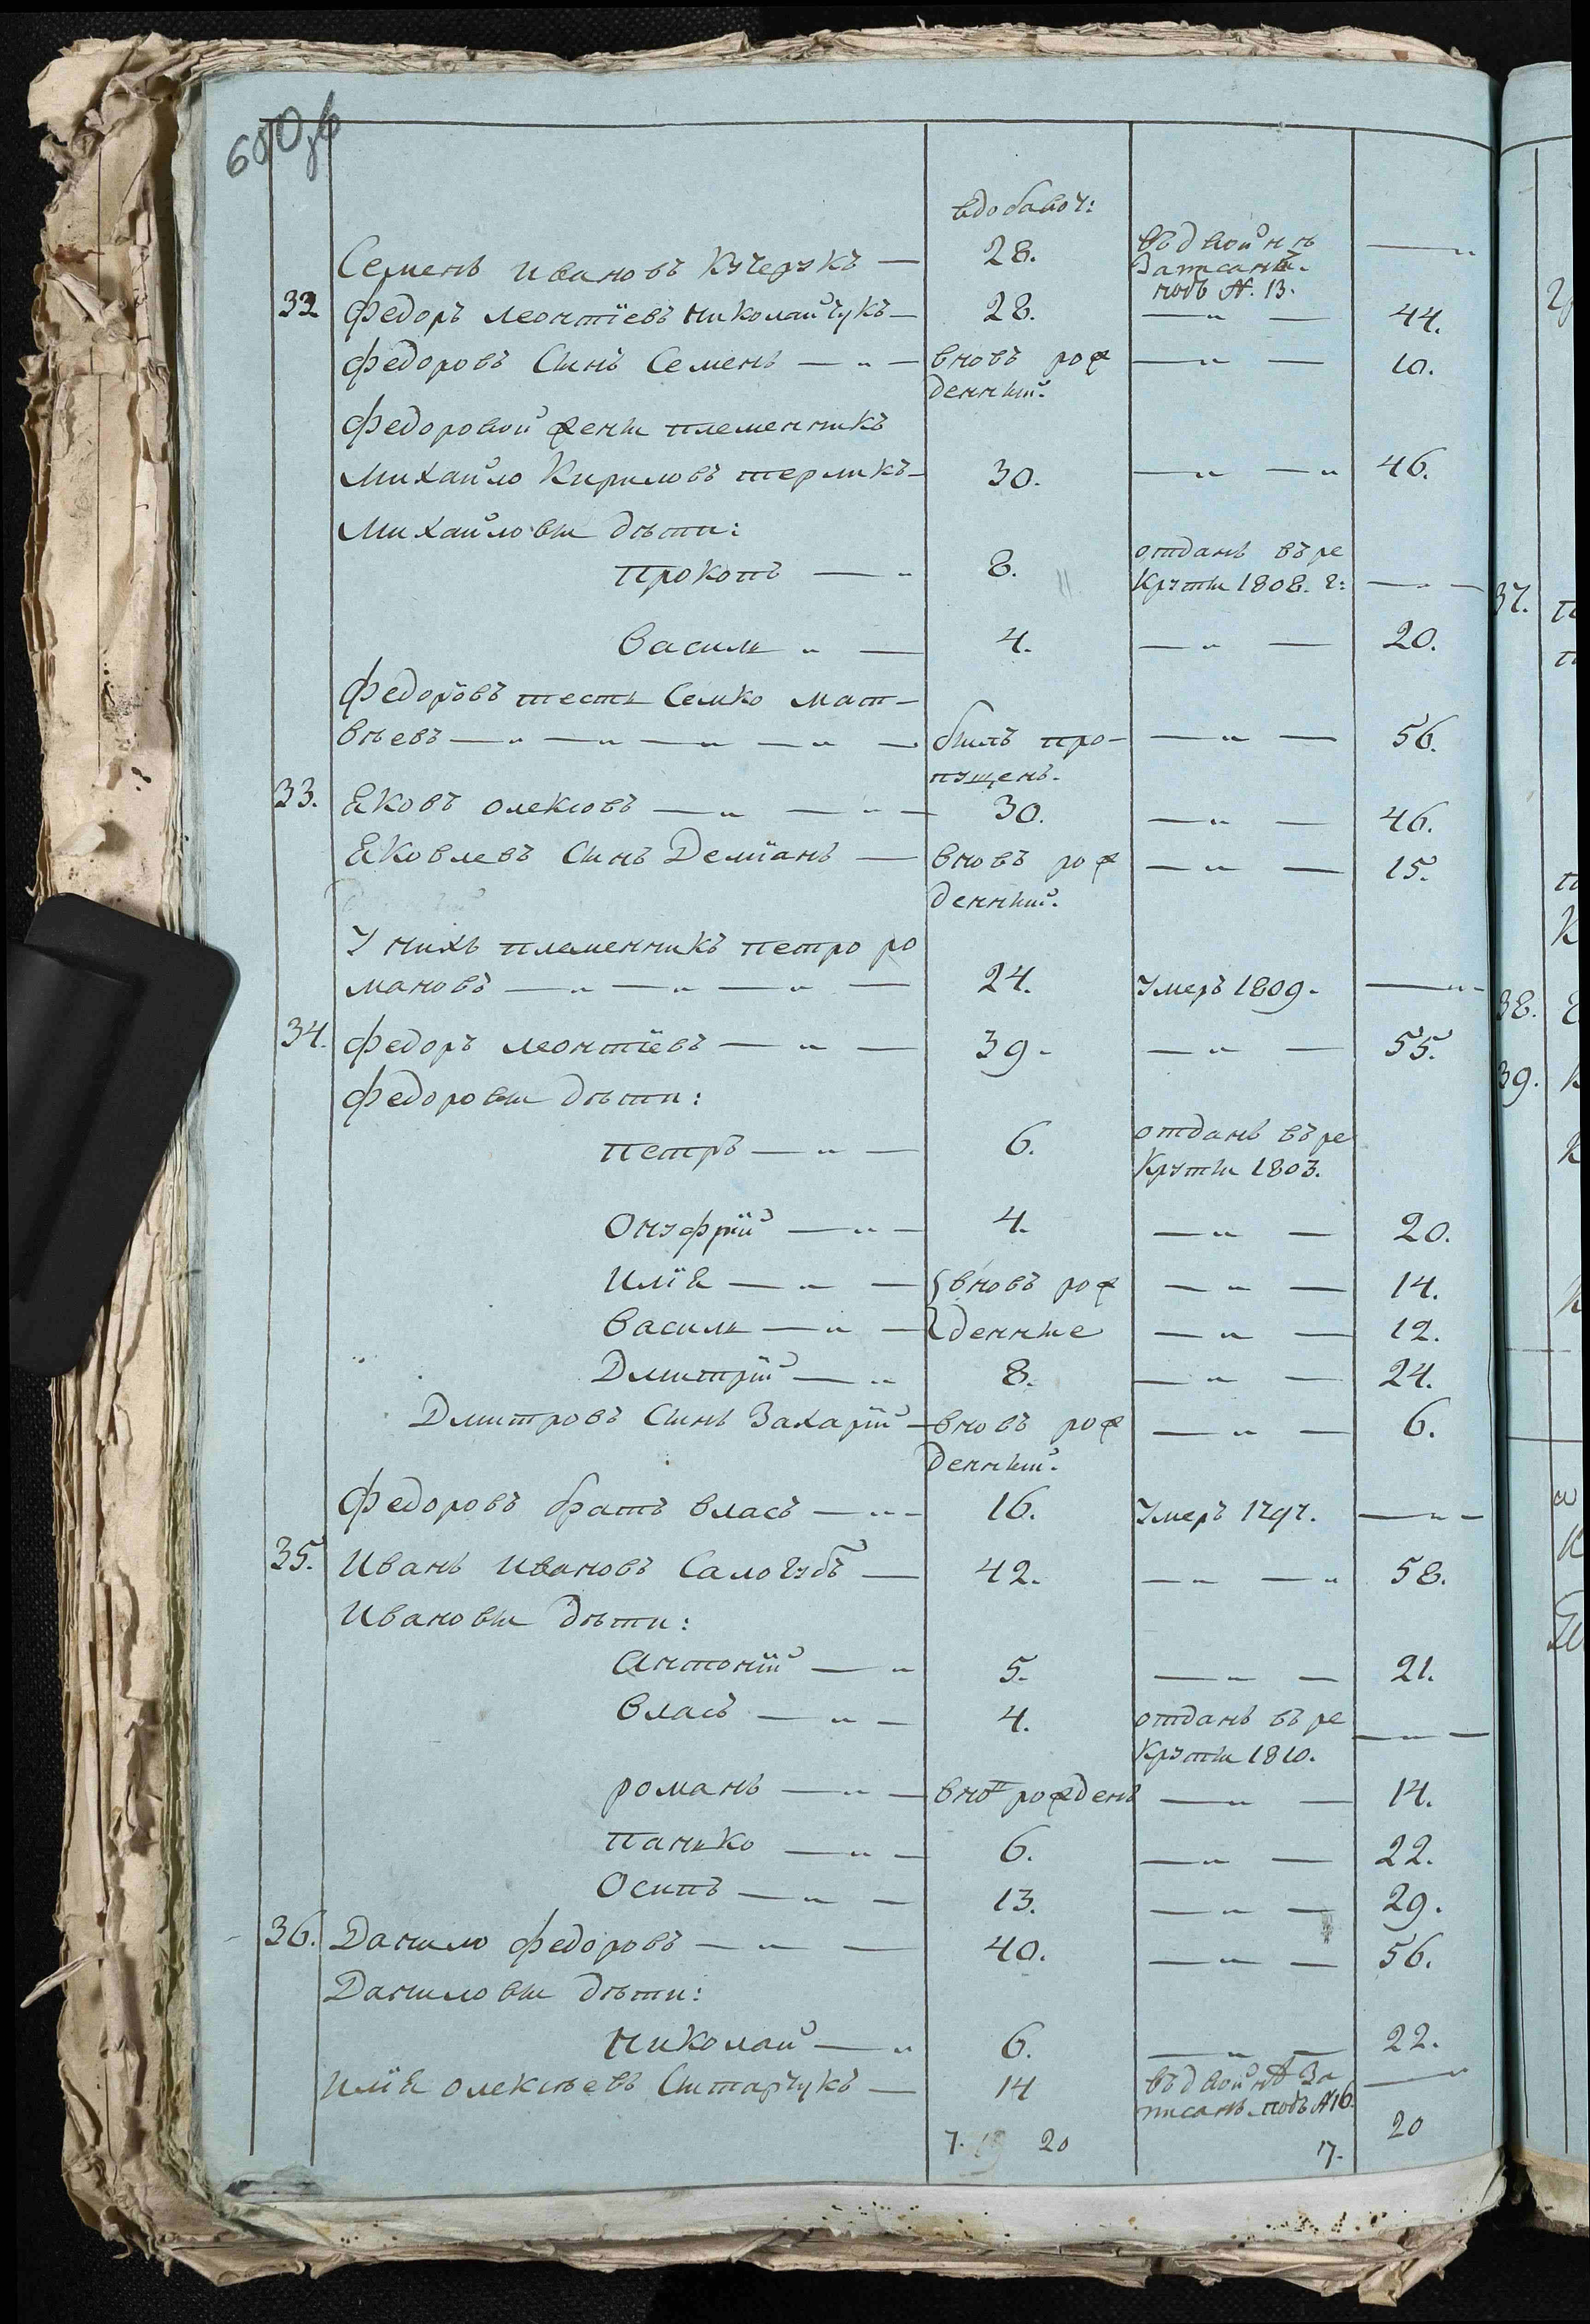 680об
вдобавоч:
Семенъ Ивановъ Кучерукъ — 28. въ двойнѣ —
записанъ.
подъ №. 13.
32 Федоръ Леонтіевъ Николайчукъ — 28. — " — 44.
Федоровъ Сынъ Семенъ — " — вновь рож — " — 10.
денный.
Федоровой жены племенникъ
Михайло Кириловъ терликъ — 30. — " — " 46.
Михайловы дѣти:
Прокопъ — " 8. отданъ въ ре
круты 1808. г: — " —
Василь " — 4. — " — 20.
Федоровъ тесть Семко Мат-
вѣевъ — " — " — " — " — былъ про- — " — 56.
пущенъ.
33. Яковъ Олексіовъ — " — " — 30. — " — 46.
Яковлевъ Сынъ Деміанъ — вновь рож — " — 15.
денный.
У нихъ племенникъ Петро Ро
мановъ — " — " — " — 24. Умеръ 1809. — "
34. Федоръ Леонтіевъ — " — 39. — " — 55.
Федоровы дѣти:
Петръ — " — 6. отданъ въ ре
круты 1803.
Онуфрій — " — 4. — " — 20.
Илія — " — вновь рож — " — 14.
Василь — " — денные — " — 12.
Дмитрій — " 8. — " — 24.
Дмитровъ Сынъ Захарій — вновь рож — " — 6.
денный.
Федоровъ братъ Власъ — " — 16. Умеръ 1797. — " —
35. Иванъ Ивановъ Салогубъ — 42. — " — " 58.
Ивановы дѣти:
Антоній — " 5. — " — 21.
Власъ — " — 4. отданъ въ ре
круты 1810. — " —
Романъ — " — вно рожденъ — " — 14.
Панько — " — 6. — " — 22.
Осипъ — " — 13. — " — 29.
36. Данило Федоровъ — " — 40. — " — 56.
Даниловы дѣти:
Николай — " 6. — " — 22.
Илія Олексѣевъ Ситарчукъ — 14 въ двойнѣ за — "
писанъ подъ №16.
7. 20 7. 20
37.
38.
39.